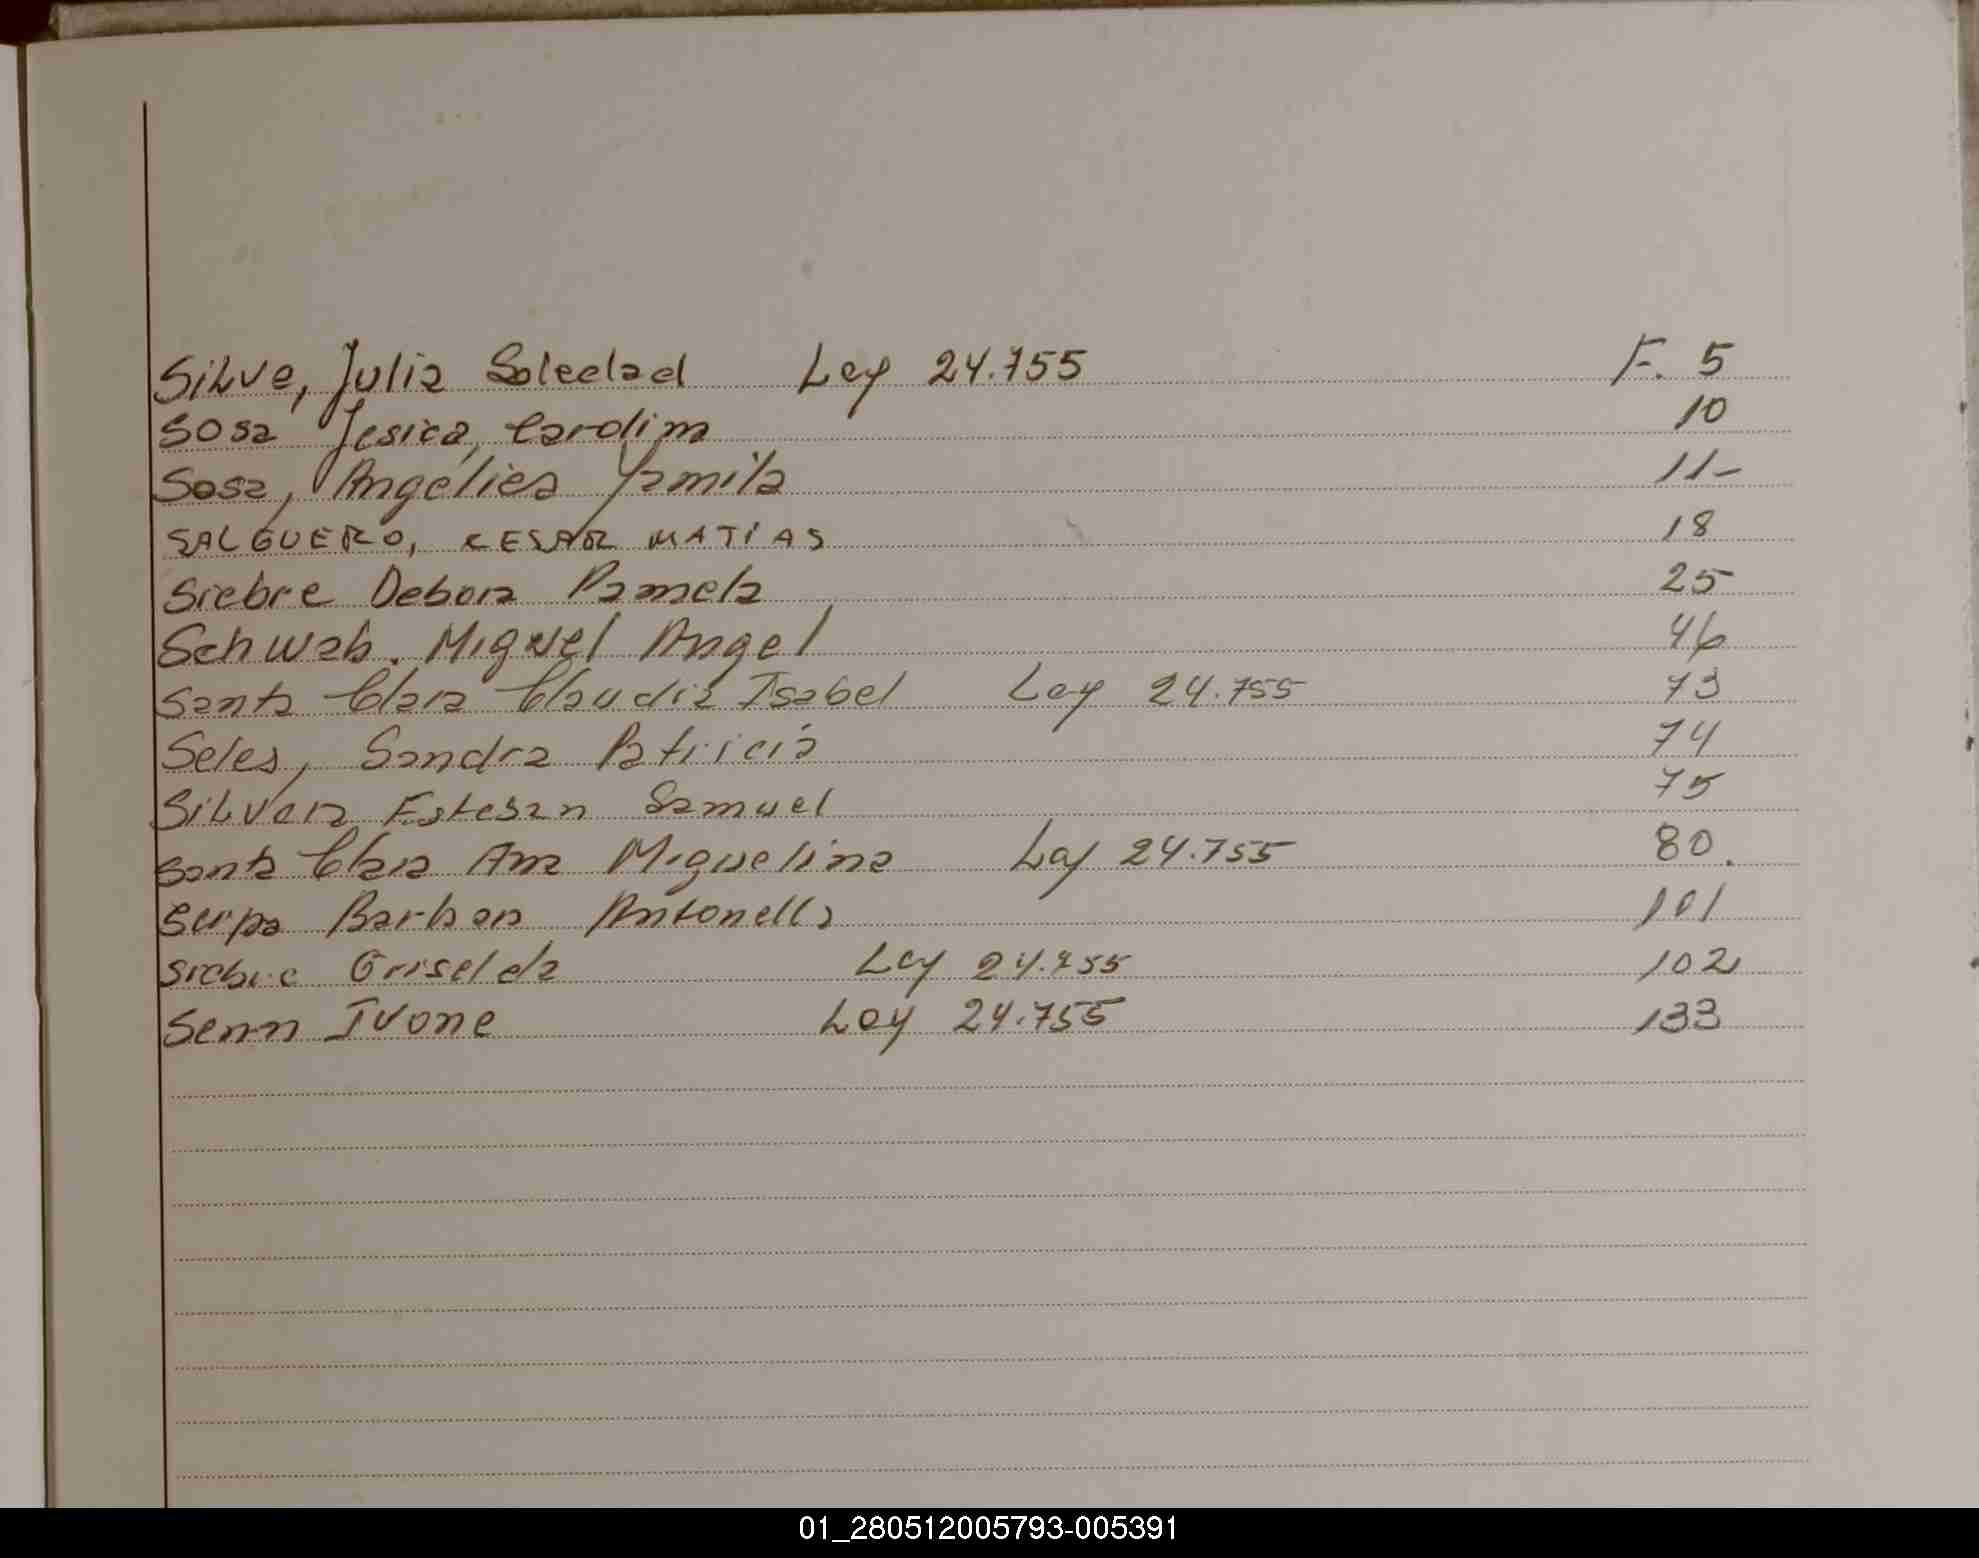 Silva, Julia Soledad Ley 24.755 F. 5
Sosa Jesica, Carolina 10
Sosa, Angélica Yamila 11-
SALGUERO, CESAR MATIAS 18
Siebre Debora Pamela 25
Schwab. Miguel Angel 46
Santa Clara Claudia Isabel Ley 24.755 73
Seles, Sandra Patricia 74
Silvera Esteban Samuel 75
Santa Clara Ana Miguelina Ley 24.755 80.
Barbara Antonella 101
Siebre Griselda Ley 24.755 102
Senn Ivone Ley 24.755 133
01_280512005793-005391